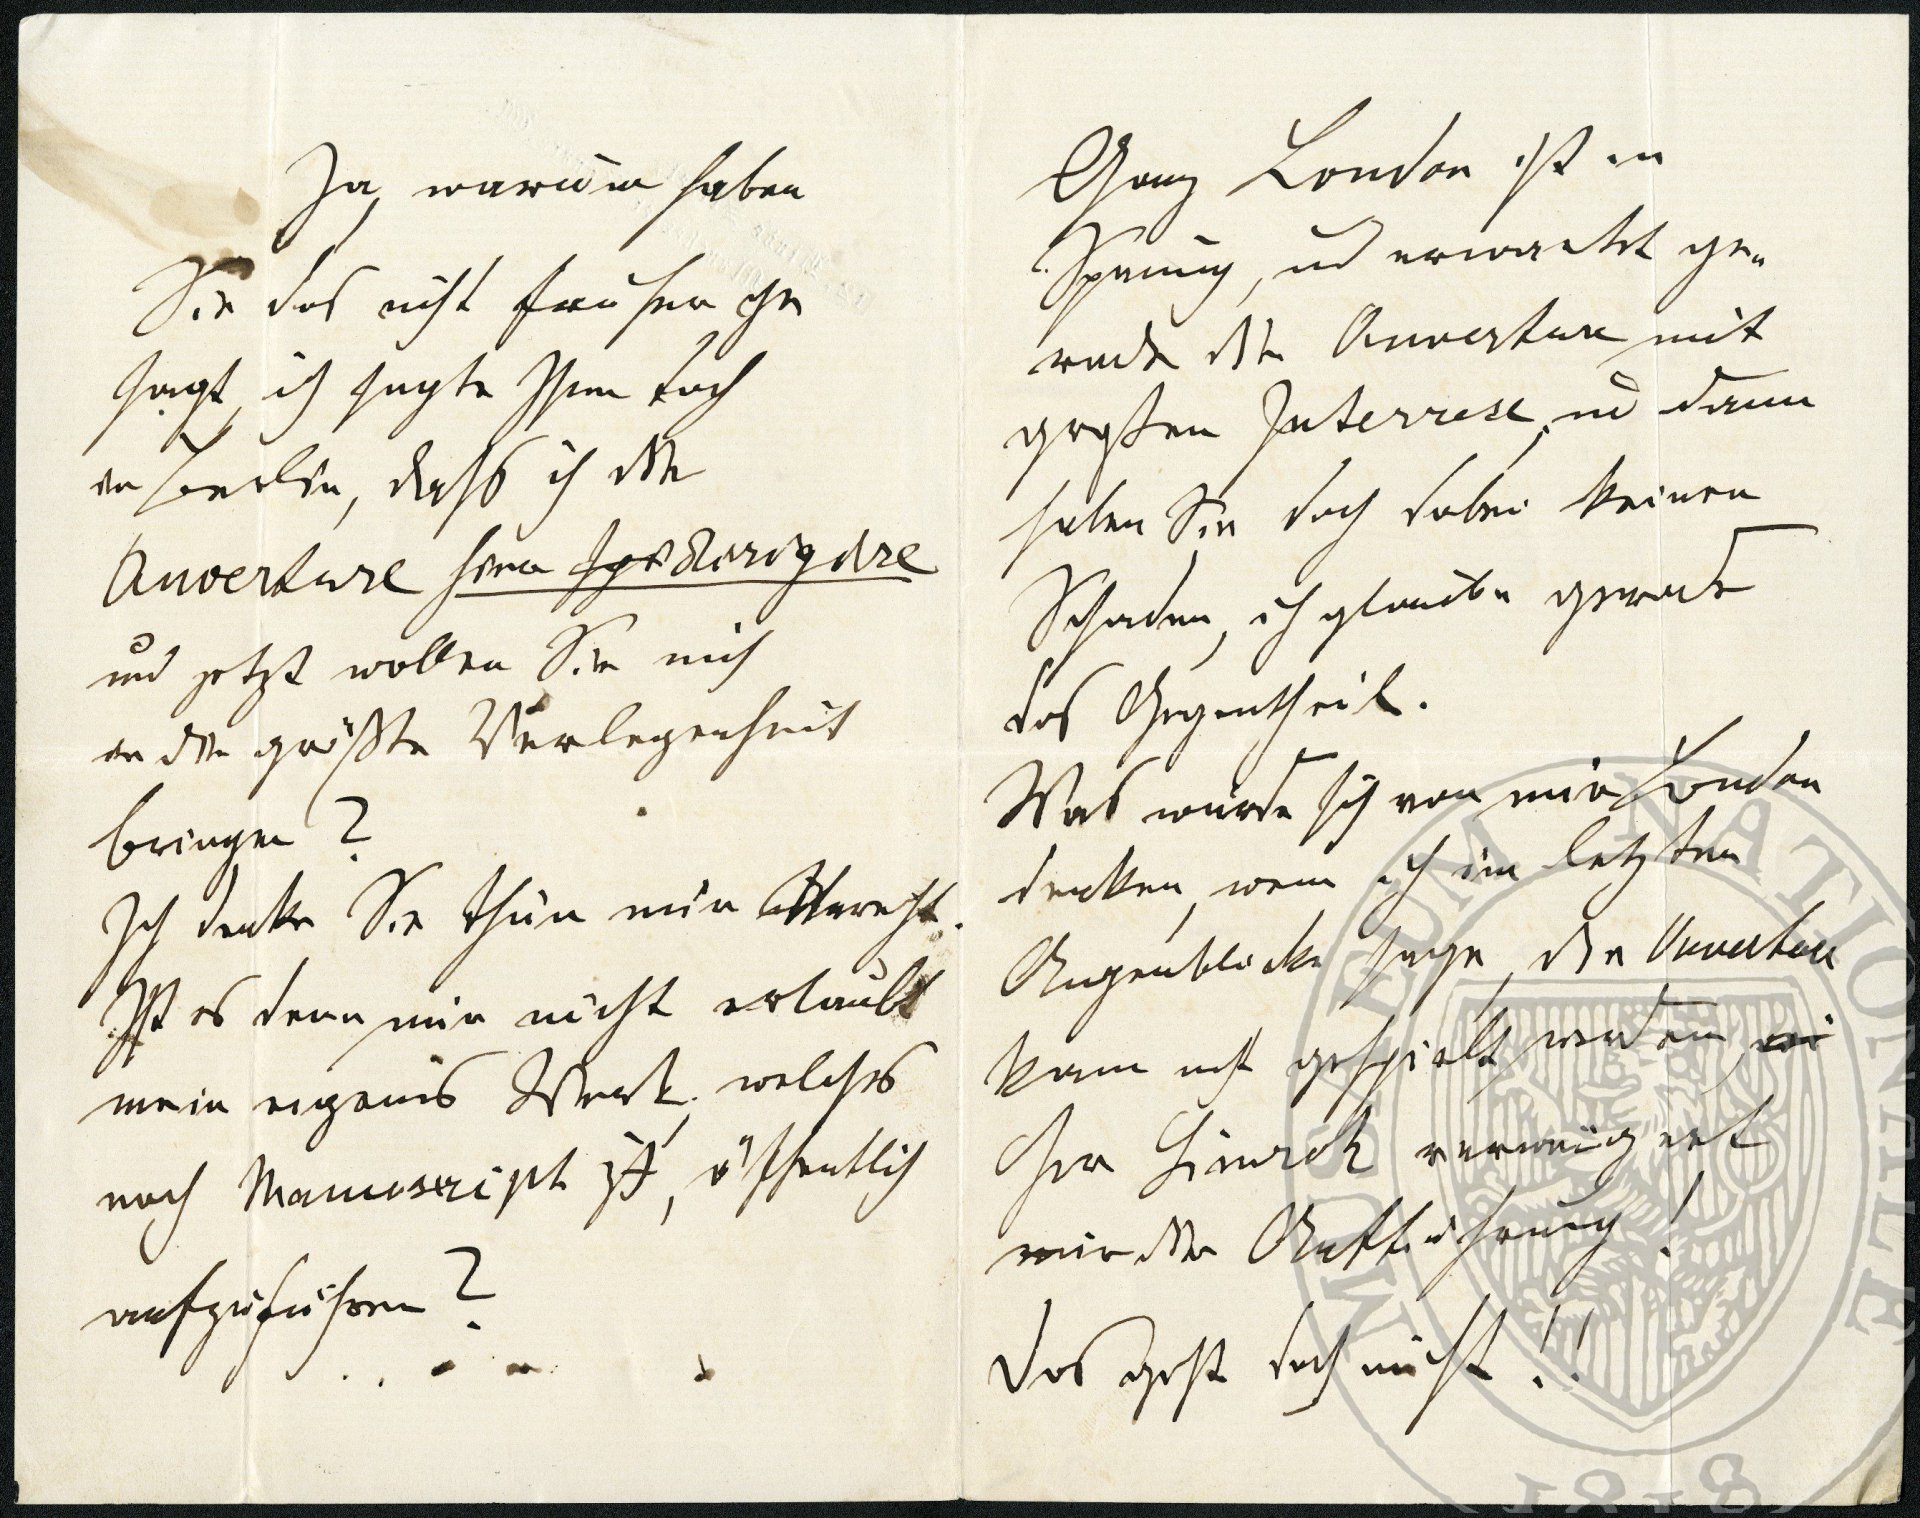 Ja, warum haben
Sie das nicht früher ge
sagt, ich sagte Ihnen doch
in Berlin, dass ich die
Ouverture hier
und jetzt wollen Sie mich
in die größte Verlegenheit
bringen?
Ich denke Sie thun mir Unrecht.
Ist es denn mir nicht erlaubt
mein eigenes Werk, welches
noch Manuscript ist, öffentlich
aufzuführen?
Ganz London ist in
und erwartet ge„
rade die Ouverture mit
größten Interrese, und dann
haben Sie doch dabei keinen
Schaden, ich glaube gerade
das Gegentheil.
Was würde sich von mir London
denken, wenn ich im letzten
Augenblicke sage, die Ouverture
kann nicht gespielt werden,
Herr Simrock verweigert
mir die Aufführung!
Das geht doch nicht!!
MUSEUM NATIONALE
1818